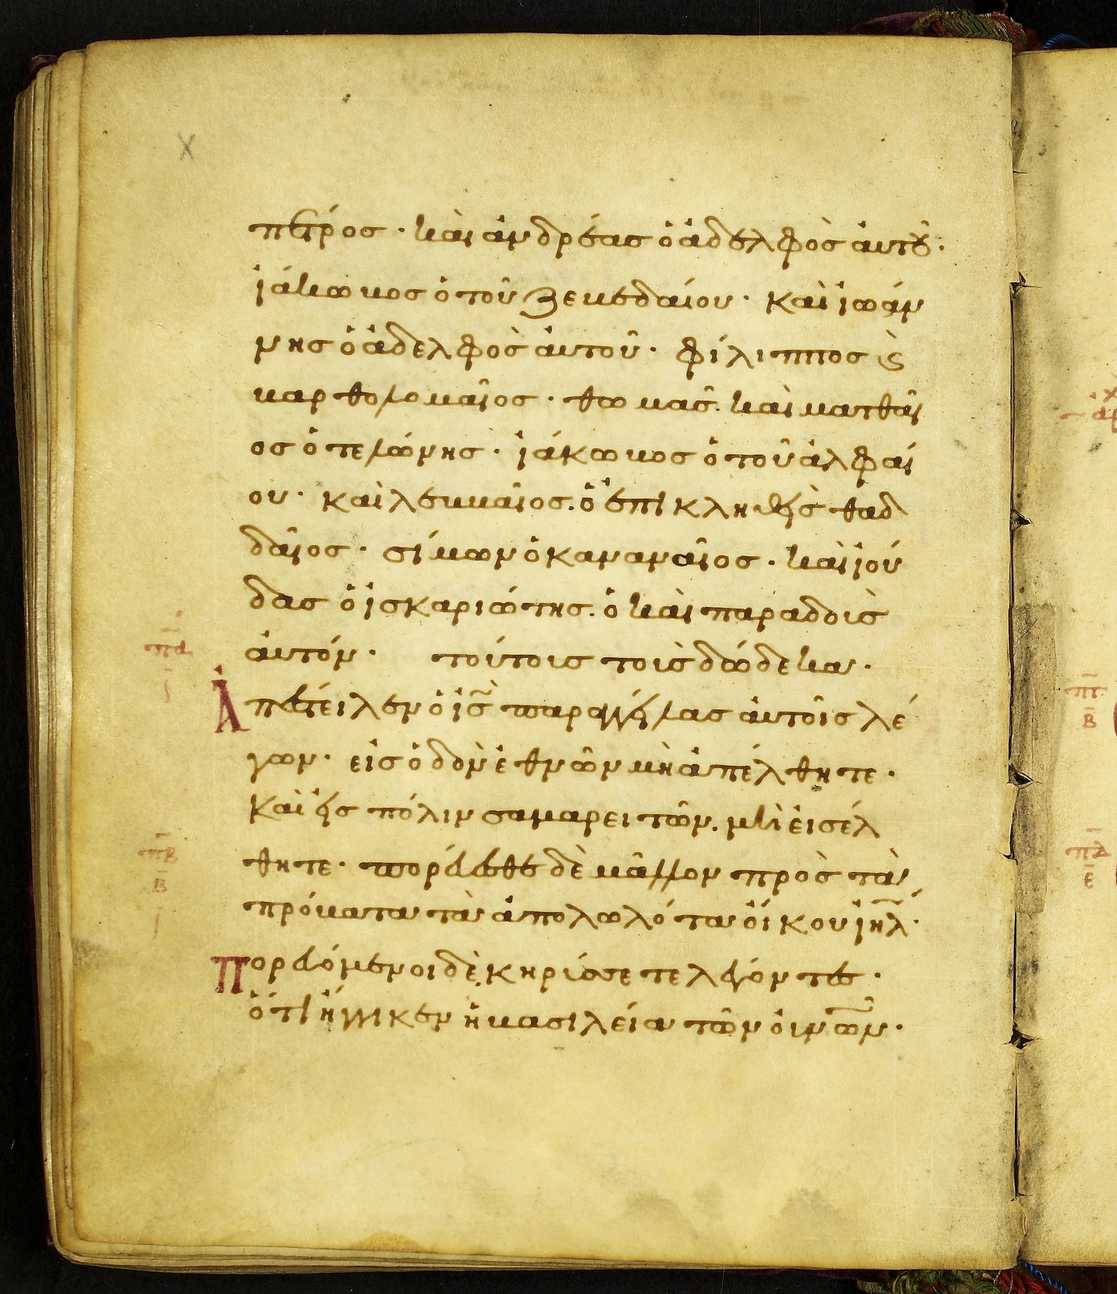 πέτρος · καὶ ἀνδρέας ὁ ἀδελφὸς ἀυτοῦ ·
ἰάκωβος ὁ τοῦ ζεβεδαίου · καὶ ἰωάν
νης ὁ ἀδελφὸς ἀυτοῦ · φίλιππος ϗ
βαρθολομαῖος · θωμας · καὶ ματθαῖ
ος ὁ τελώνης · ἰάκωβος ὁ τοῦ ἀλφαί
ου · καὶ λεββαῖος · ὁ ἐπικληθεὶς θαδ
δαῖος · σίμων ὁ καναναῖος · καὶ ἰού
δας ὁ ἰσκαριώτης · ὁ καὶ παραδδοὺς
ἀυτόν · τούτους τοὺς δώδεκα ·
πα
Ἀπέστειλεν ὁ ι̅ς̅ παραγγείλας ἀυτοῖς λέ
γων · εἰς ὁδὸν ἐθνῶν μὴ ἀπέλθητε ·
καὶ εἰς πόλιν σαμαρειτῶν · μὴ εἰσέλ
πβ
β
θητε · πορεύεσθε δὲ μᾶλλον πρὸς τὰ
πρόβατα τὰ ἀπολωλότα ὄικου ι̅η̅λ̅ ·
Πορευόμενοι δὲ κηρύσσετε λέγοντες ·
ὅτι ἤγγικεν ἡ βασιλεία τῶν ὀυ̅ν̅ῶν ·